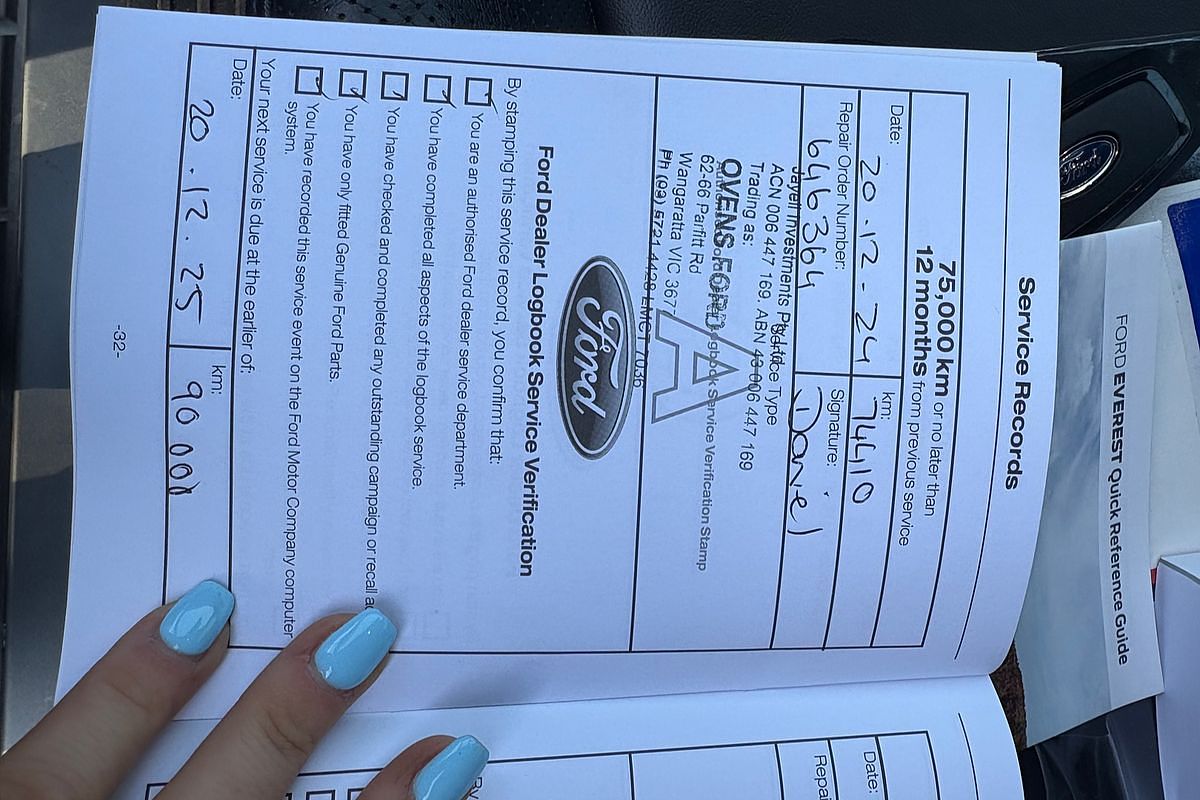 Service Records
75,000 km or no later than
12 months from previous service
Date: 20.12-24 km: 74410
Repair Order Number: 646364 Signature: Daniel
Jayell Investments Pty Ltd
ACN 006 447 169. ABN 43 006 447 169
Trading as:
OVENS FORD
62-66 Parfitt Rd
Wangaratta VIC 367
Ph (03) 5721 4428 LMCT 7036
Service Type
A
Logbook Service Verification Stamp
Ford
Ford Dealer Logbook Service Verification
By stamping this service record, you confirm that:
You are an authorised Ford dealer service department.
You have completed all aspects of the logbook service.
You have checked and completed any outstanding campaign or recall
You have only fitted Genuine Ford Parts.
You have recorded this service event on the Ford Motor Company computer
system.
Your next service is due at the earlier of:
Date: 20.12.25 km: 90000
-32-
FORD EVEREST Quick Reference Guide
Ford
Date:
Repai
By